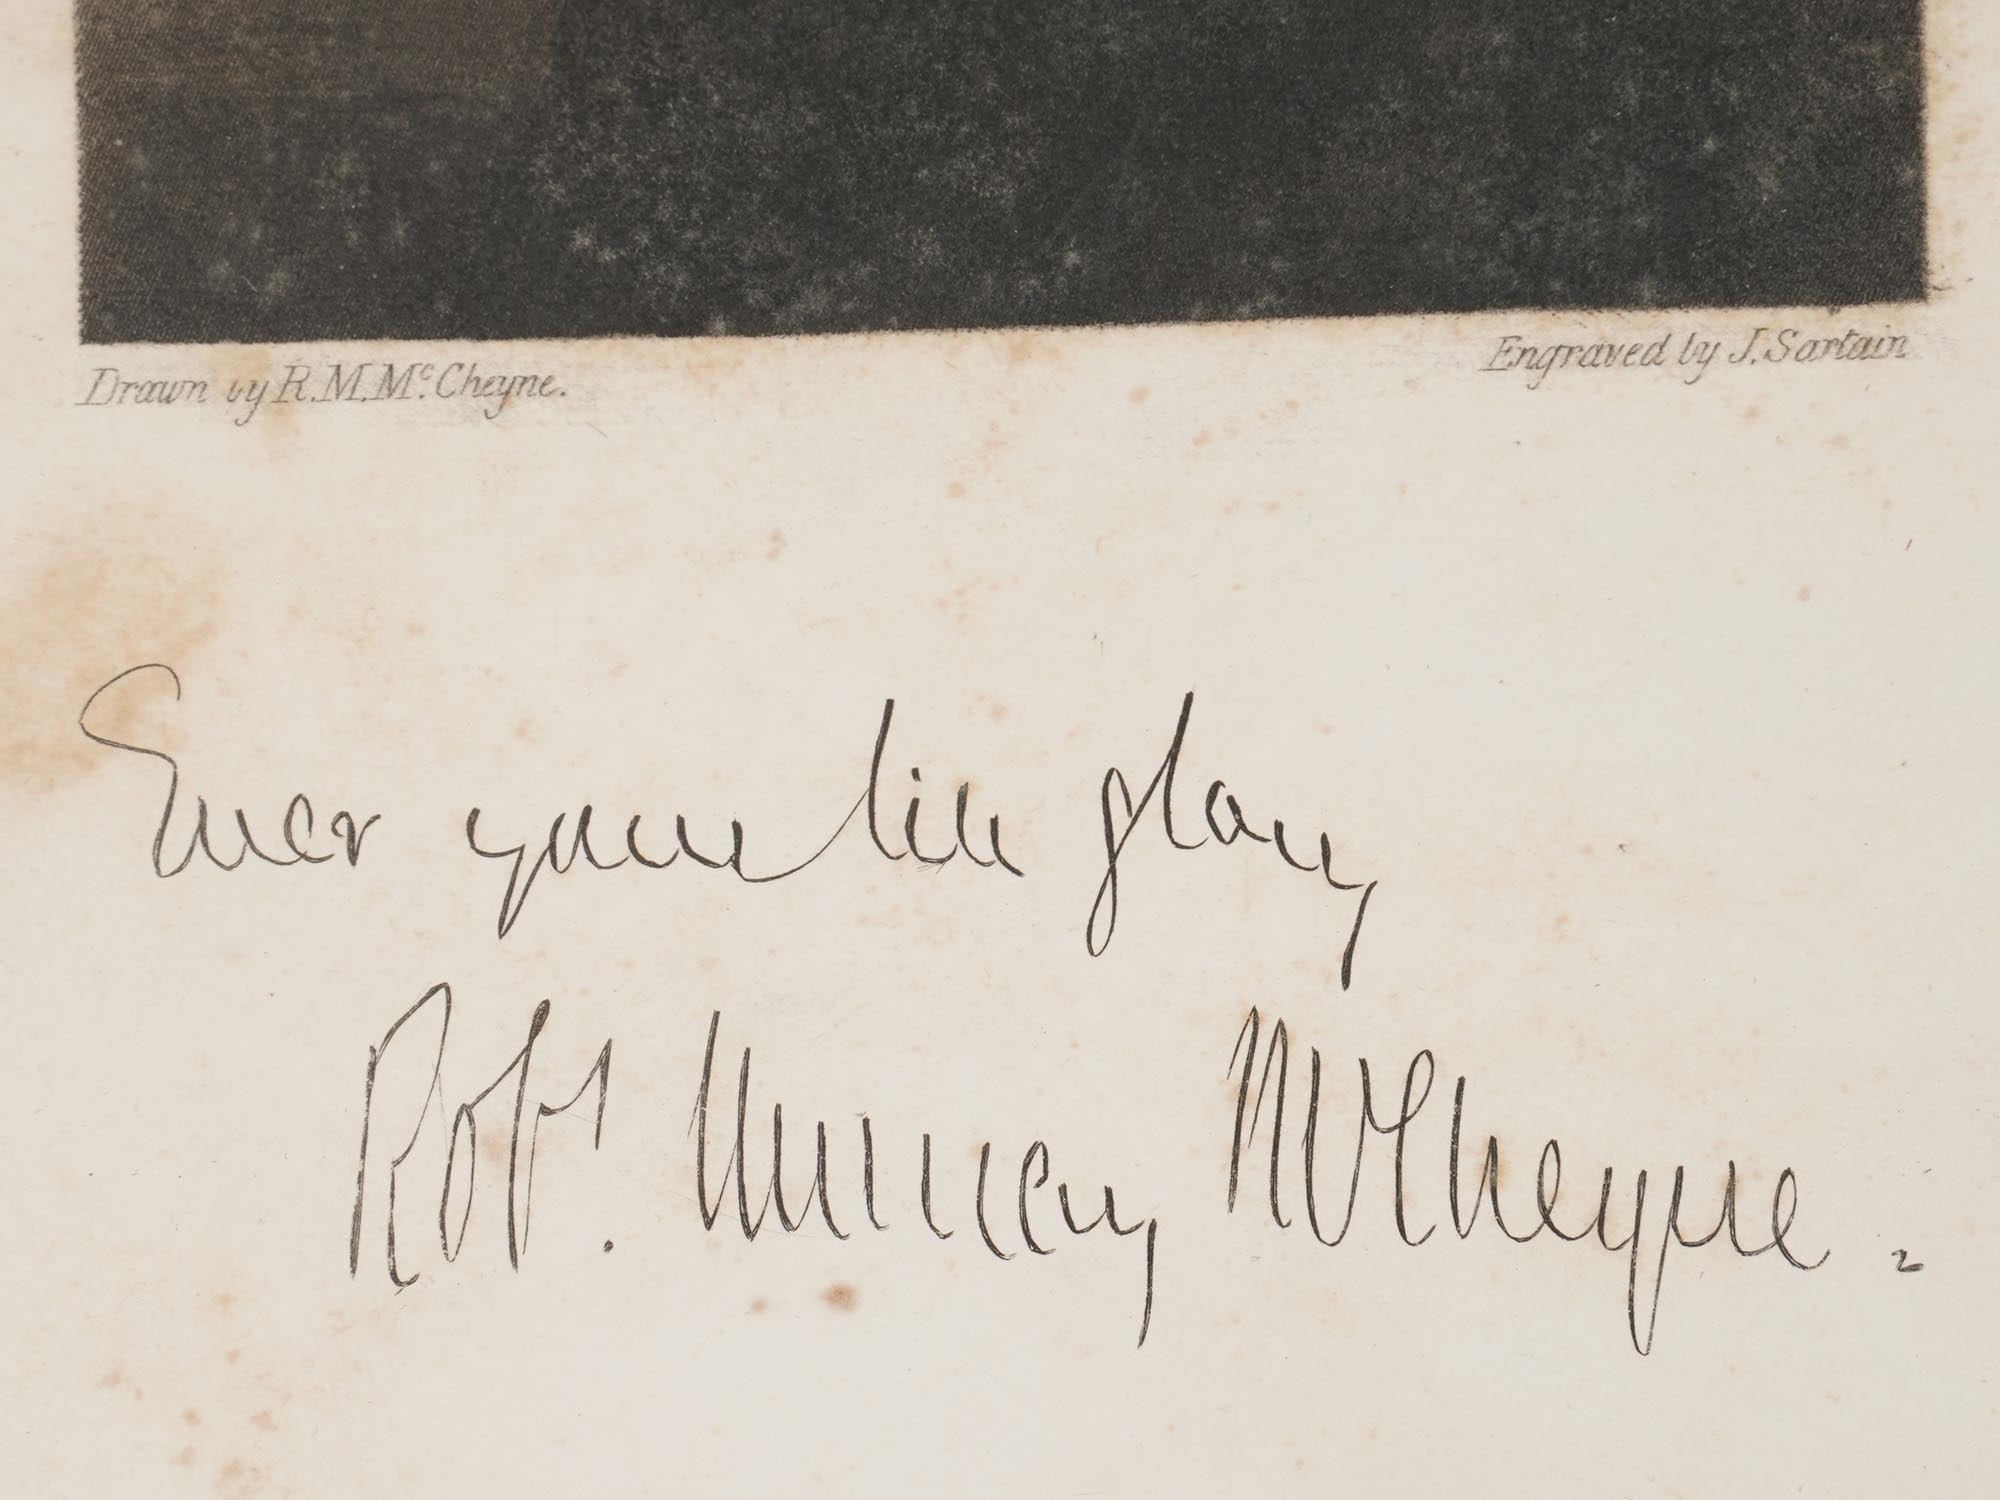 Drawn by R.M. McCheyne.
Engraved by J. Sartain
Ever yours till glory
Robt. Murray McCheyne.